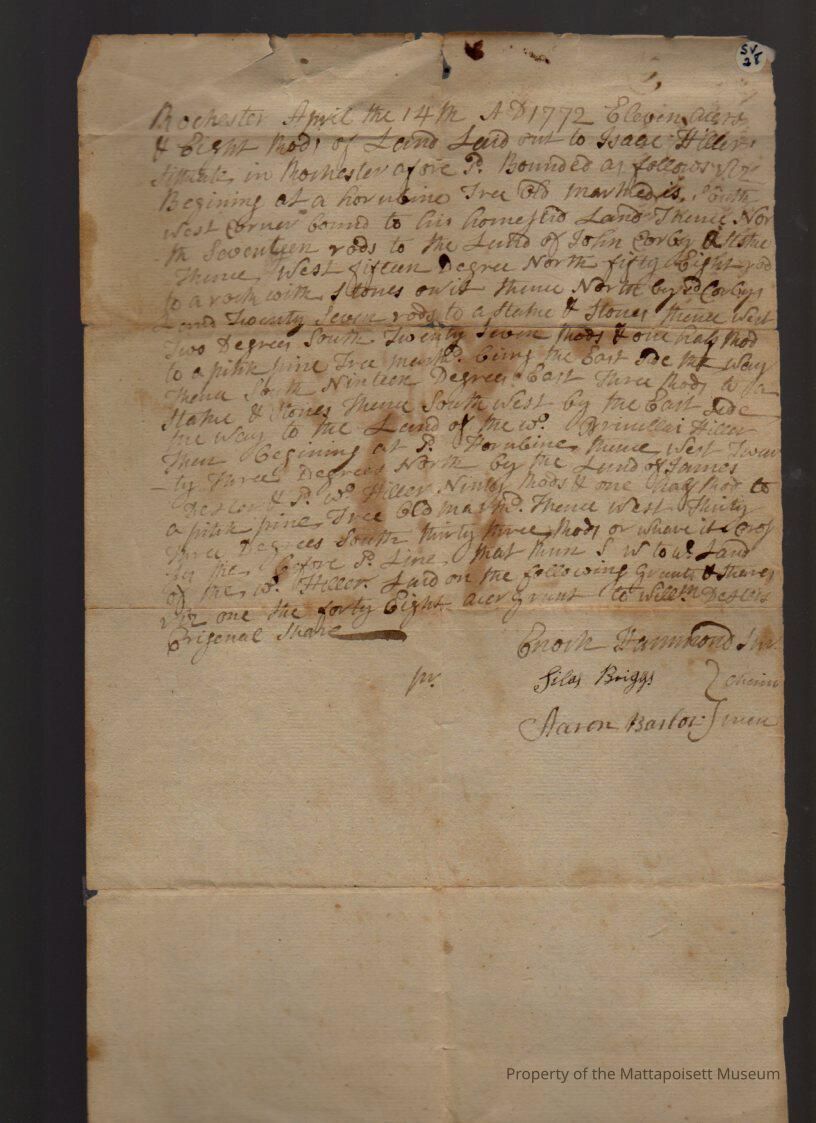 SV
28
Rochester April the 14th AD 1772 Eleven acers
& Eight Rods of Land Laid out to Isaac Hiller
situate in Rochester afore sd. Bounded as follows viz
Begining at a hornbine Tree old marked is South
west Corner bound to his homested Land Thence Nor
th Seventeen rods to the Land of John Corby & Stake
Thence West fifteen Degree North fifty Eight rod
to a rock with Stones on it thence North by sd Corbys
Land Twenty Seven rods to a Stake & Stones thence west
Two Degrees South Twenty Seven Rods & one half Rod
to a pitch pine Tree markd. being the East Side the way
thence South Ninteen Degrees East Three Rods to a
Stake & Stones Thence South west by the East Side
the way to the Land of the wd. Hiller
Then begining at sd. Hornbine thence West Twen
ty three Degrees North by the Land of James
Dexter & sd. wd. Hiller Ninty Rods & one half Rod to
a pitch pine Tree old markd. Thence West Thirty
three Degrees South thirty three Rods or where it Cros
by the before sd. Line that Runs S W to sd. Land
of the wd. Hiller. Laid on the following Grants & Shares
viz one the forty Eight acer grant to Willm. Dexters
Origenal Share
Enoch Hammond Sur.
pr.
Silas Briggs
Chain
Aaron Barlow
men
Property of the Mattapoisett Museum